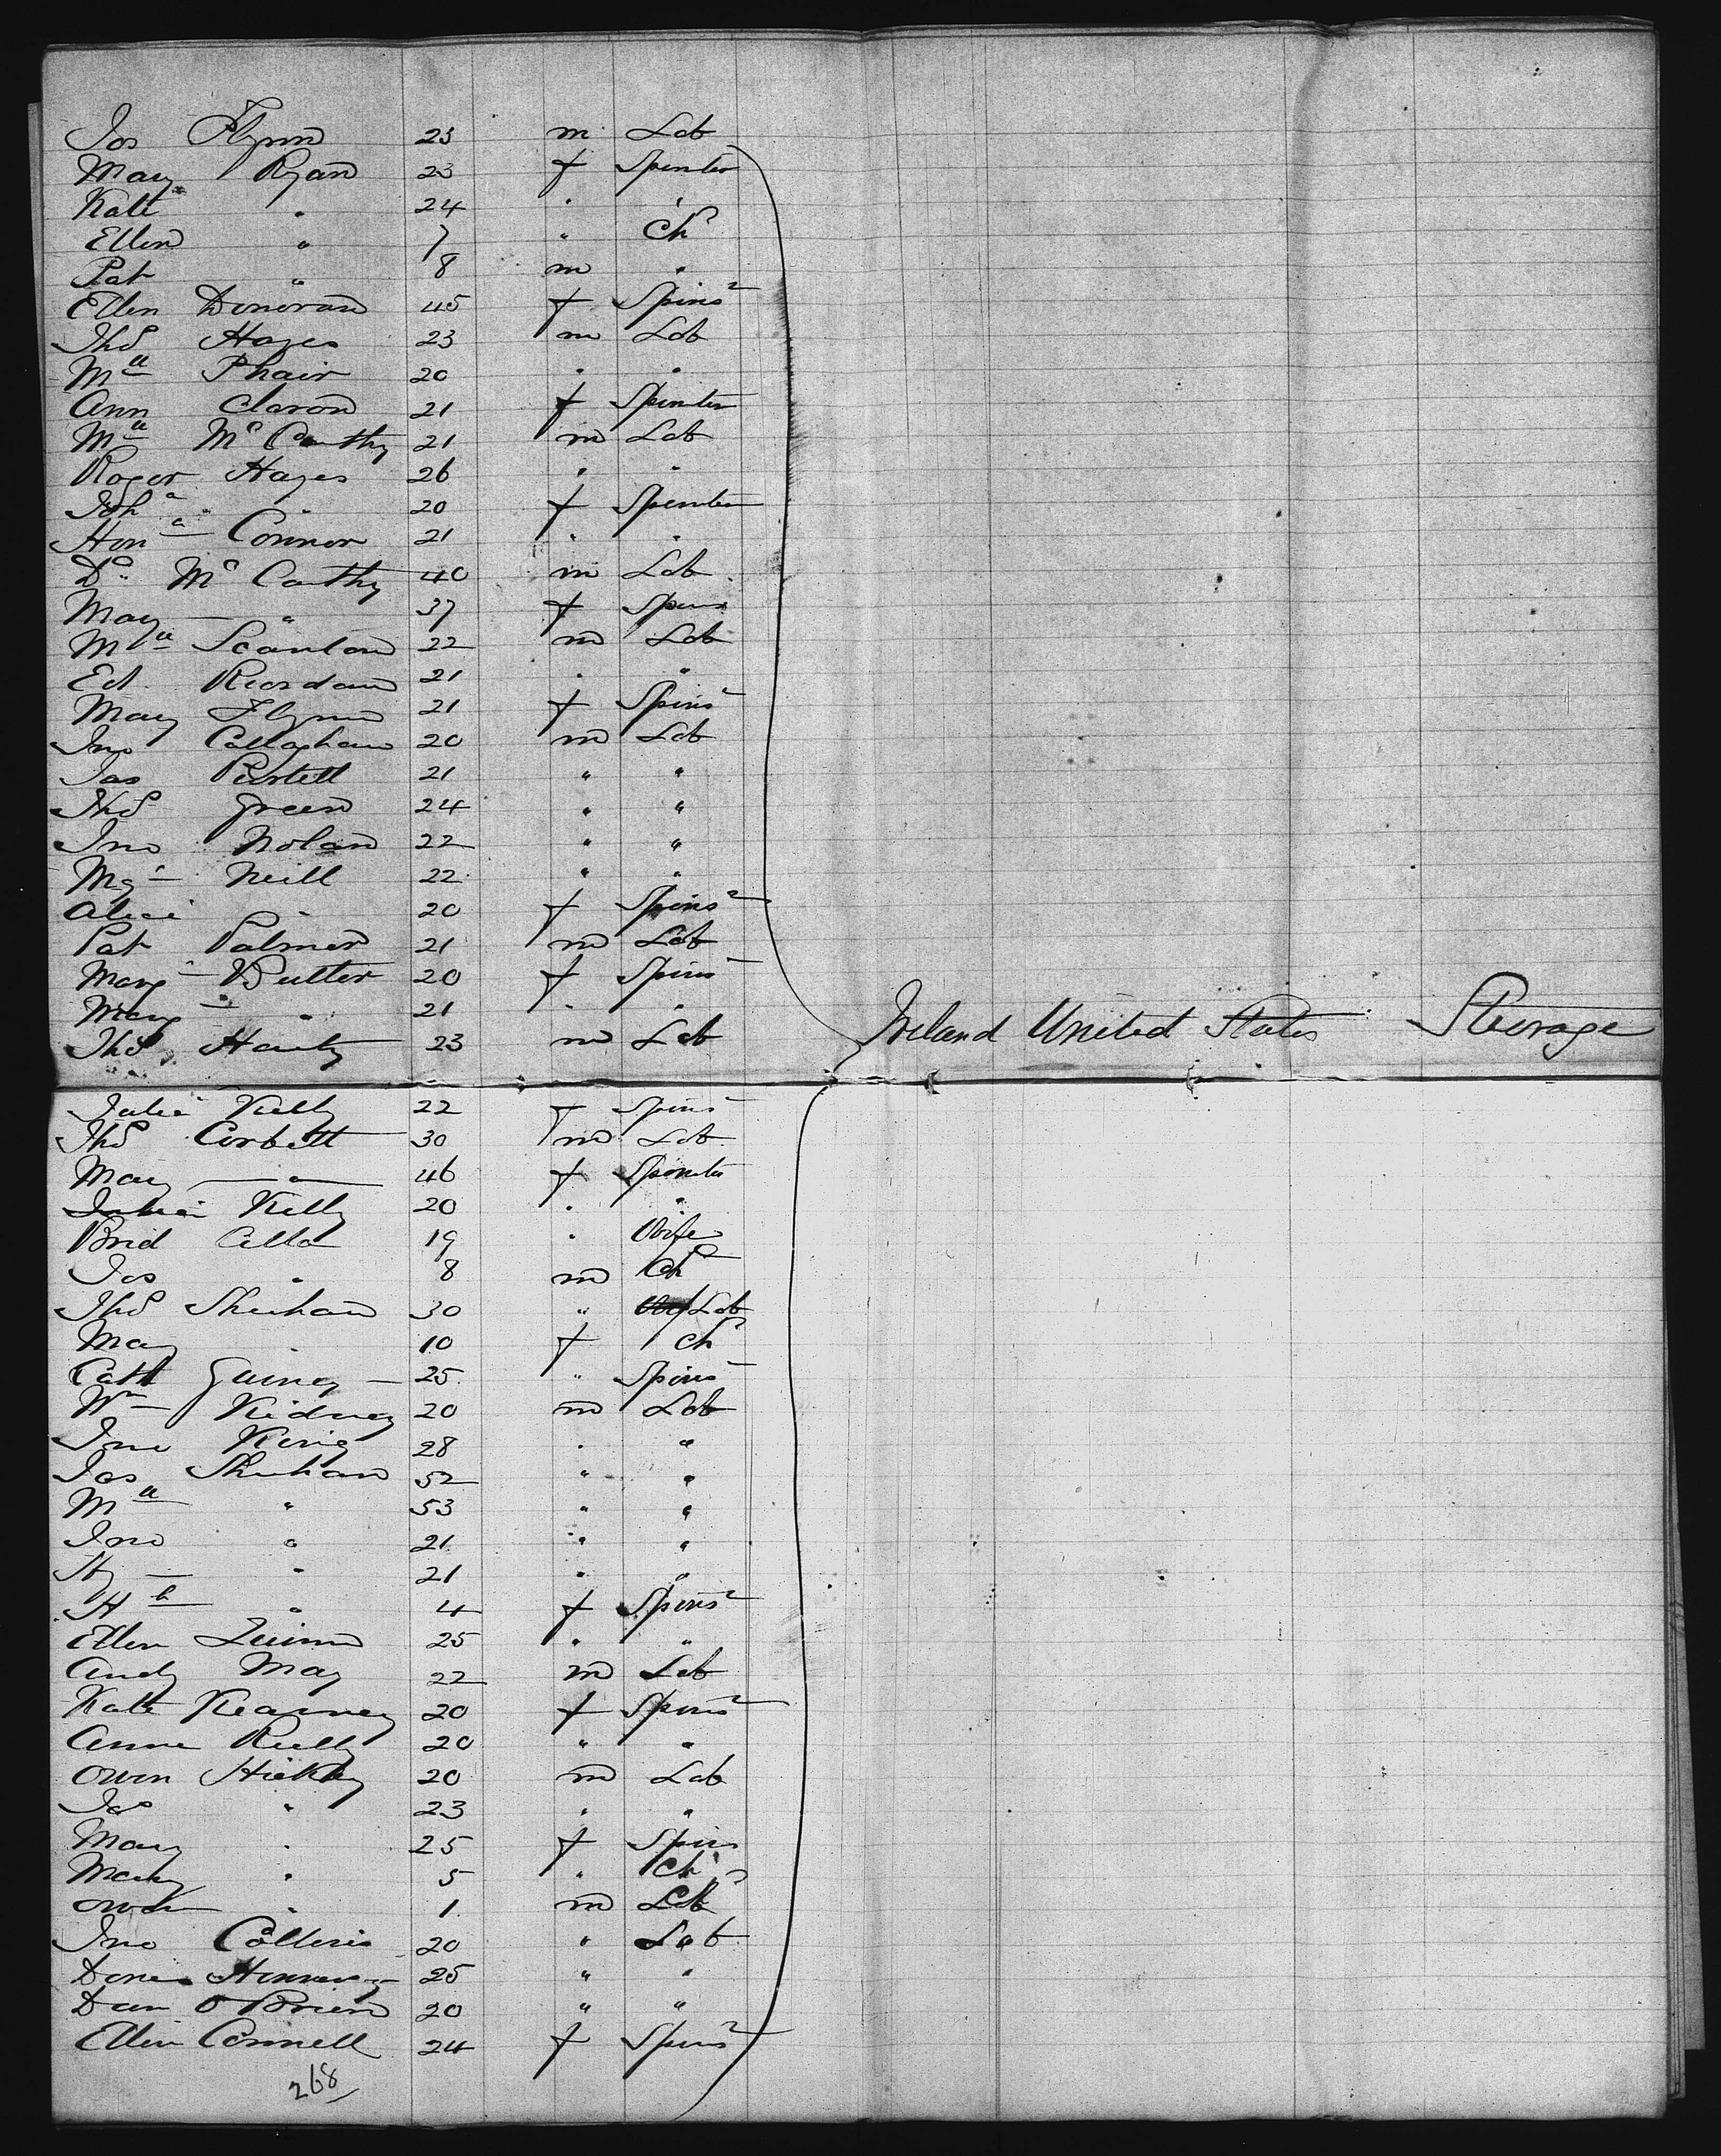 Jas Flynn 23 m Lab
Mary Ryan 23 f Spinster
Kate " 24 " "
Ellen " 7 " Ch
Pat " 8 m "
Ellen Donovan 45 f Spins
Thos Hayes 23 m Lab
Ml Phair 20 " "
Ann Claron 21 f Spinster
Ml McCarthy 21 m Lab
Roger Hayes 26 " "
Joha " 20 f Spinster
Hona Connor 21 " "
Ds McCarthy 40 m Lab
Mary " 37 f Spins
Ml Scanlon 22 m Lab
Ed Reordan 21 " "
Mary Flynn 21 f Spins
Jno Callaghan 20 m Lab
Jas Purtell 21 " "
Thos Green 24 " "
Jno Nolan 22 " "
Mg Neill 22 " "
Alice " 20 f Spins
Pat Palmer 21 m Lab
Marg Butler 20 f Spins
Mary " 21 " "
Thos Hanty 23 m Lab Ireland United States Steerage
Julia Kelly 22 f Spins
Thos Corbett 30 m Lab
Mary " 46 f Spinster
Julia Kelly 20 " "
Brid 19 " Wife
Jas " 8 m Ch
Thos Sheehan 30 " Lab
Mary " 10 f Ch
Cath Guiney 25 " Spins
Wm Kidney 20 m Lab
Jno King 28 " "
Jas Sheehan 52 " "
Ml " 53 " "
Jno " 21 " "
Hy " 21 " "
Hh " 4 f Spins
Ellen Quinn 25 " "
Andy May 22 m Lab
Kate Kearney 20 f Spins
Anne Reilly 20 " "
Owen Hickey 20 m Lab
Jas " 23 " "
Mary " 25 f Spins
Mary " 5 " Ch
Owen " 1 m
Jno Collins 20 " Lab
Denis 25 " "
Dan O'Brien 20 " "
Ellen Connell 24 f Spins
268